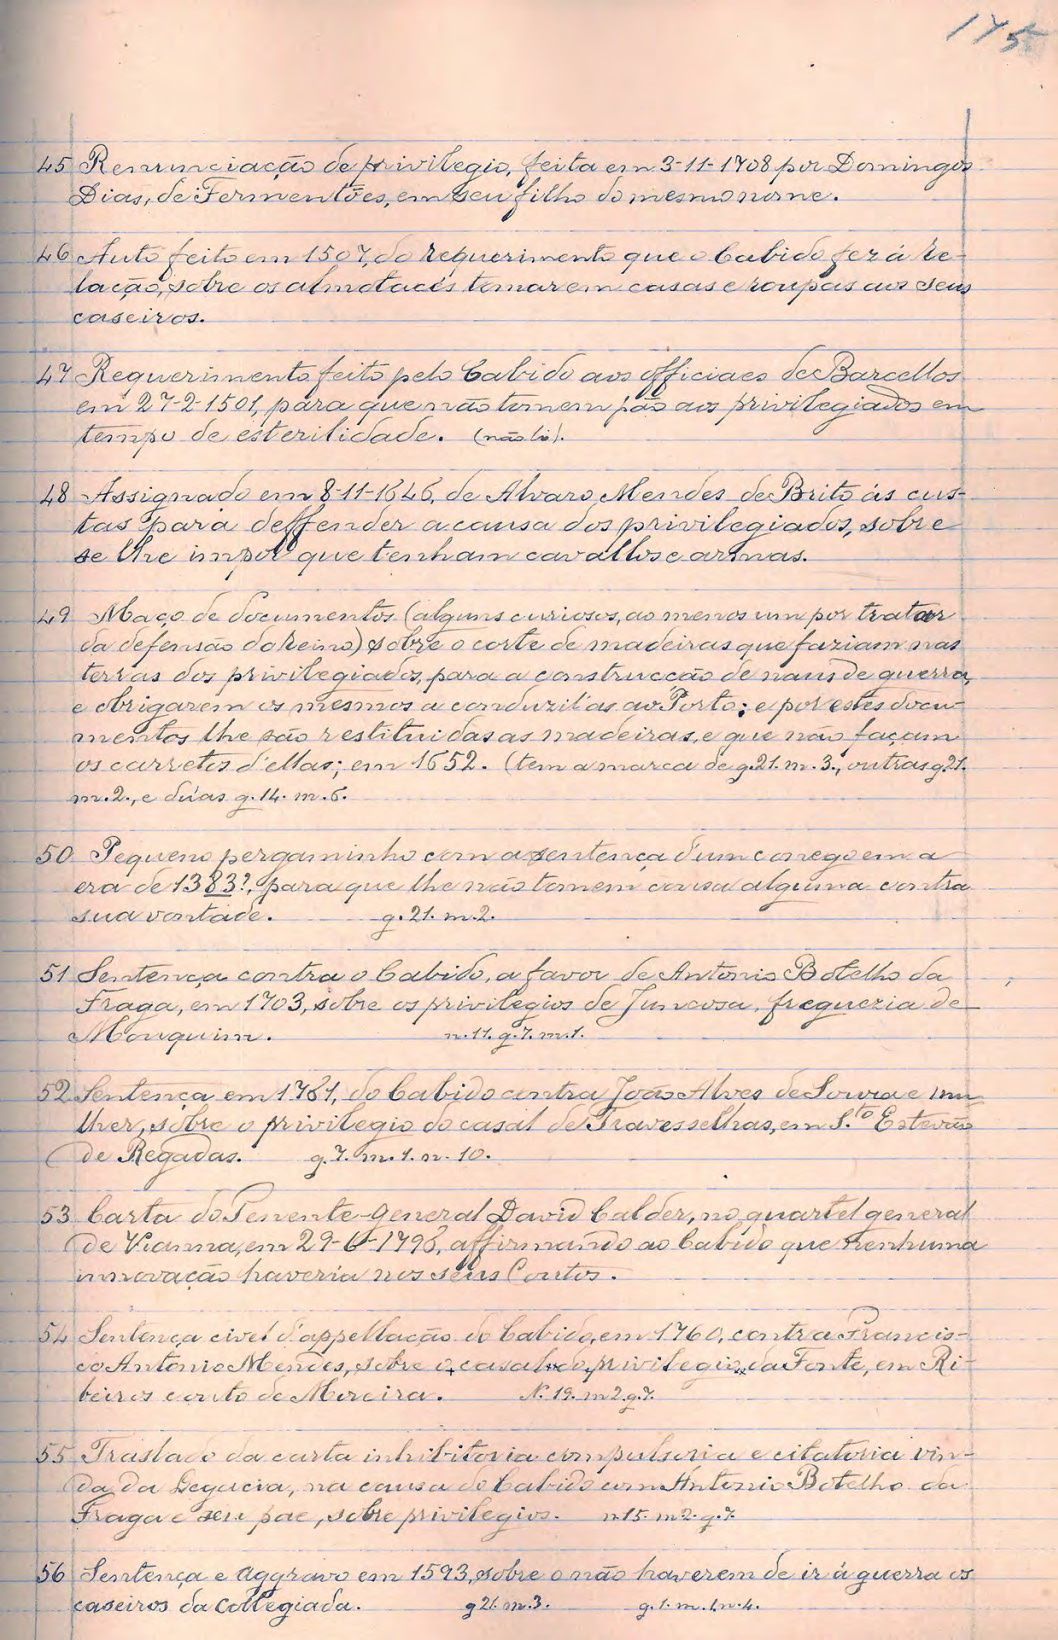 175
45 Renunciação de privilegio, feita em 3-11-1708 por Domingos
Dias, de Fermentões, em seu filho do mesmo nome.
46 Auto feito em 1507, do requerimento que o Cabido fez á Re-
lação, sobre os almotacés tomarem casas e roupas aos seus
caseiros.
47 Requerimento feito pelo Cabido aos officiaes de Barcellos
em 27-2-1501, para que não tomem pão aos privilegiados em
tempo de esterilidade. (não li).
48 Assignado em 8-11-1646, de Alvaro Mendes de Brito ás cus-
tas para deffender a causa dos privilegiados, sobre
se lhe impôr que tenham cavallos e armas.
49 Maço de documentos (alguns curiosos, ao menos um por tratar
da defensão do Reino) sobre o corte de madeiras que faziam nas
terras dos privilegiados, para a construcção de naus de guerra,
e obrigarem os mesmos a conduzil'as ao Porto; e por estes docu-
mentos lhe são restituidas as madeiras, e que não façam
os carretos d'ellas; em 1652. (tem a marca de g. 21. m. 3., outras g. 21.
m. 2., e duas g. 14. m. 6.
50 Pequeno pergaminho com a sentença d'um conego em a
era de 1383?, para que lhe não tomem cousa alguma contra
sua vontade. g. 21. m. 2.
51 Sentença contra o Cabido, a favor de Antonio Botelho da
Fraga, em 1703, sobre os privilegios de Juncosa, freguezia de
Mouquim. n. 11. g. 7. m. 1.
52 Sentença em 1781, do Cabido contra João Alves de Sousa e mu-
lher, sobre o privilegio do casal de Travesselhas, em S.to Estevão
de Regadas. g. 7. m. 1. n. 10.
53 Carta do Tenente-general David Calder, no quartel general
de Vianna, em 29-6-1798, affirmando ao Cabido que nenhuma
innovação haveria nos seus Coutos.
54 Sentença civel d'appellação do Cabido, em 1760, contra Francis-
co Antonio Mendes, sobre o casal do privilegio da Fonte, em Ri-
beiros couto de Moreira. N. 19. m 2. g. 7.
55 Traslado da carta inhibitoria compulsoria e citatoria vin-
da da Legacia, na causa do Cabido com Antonio Botelho da
Fraga e seu pae, sobre privilegios. n 15. m 2. g. 7.
56 Sentença e aggravo em 1593, sobre o não haverem de ir á guerra os
caseiros da Collegiada. g 21. m. 3. g. 1. m. 1. n. 4.